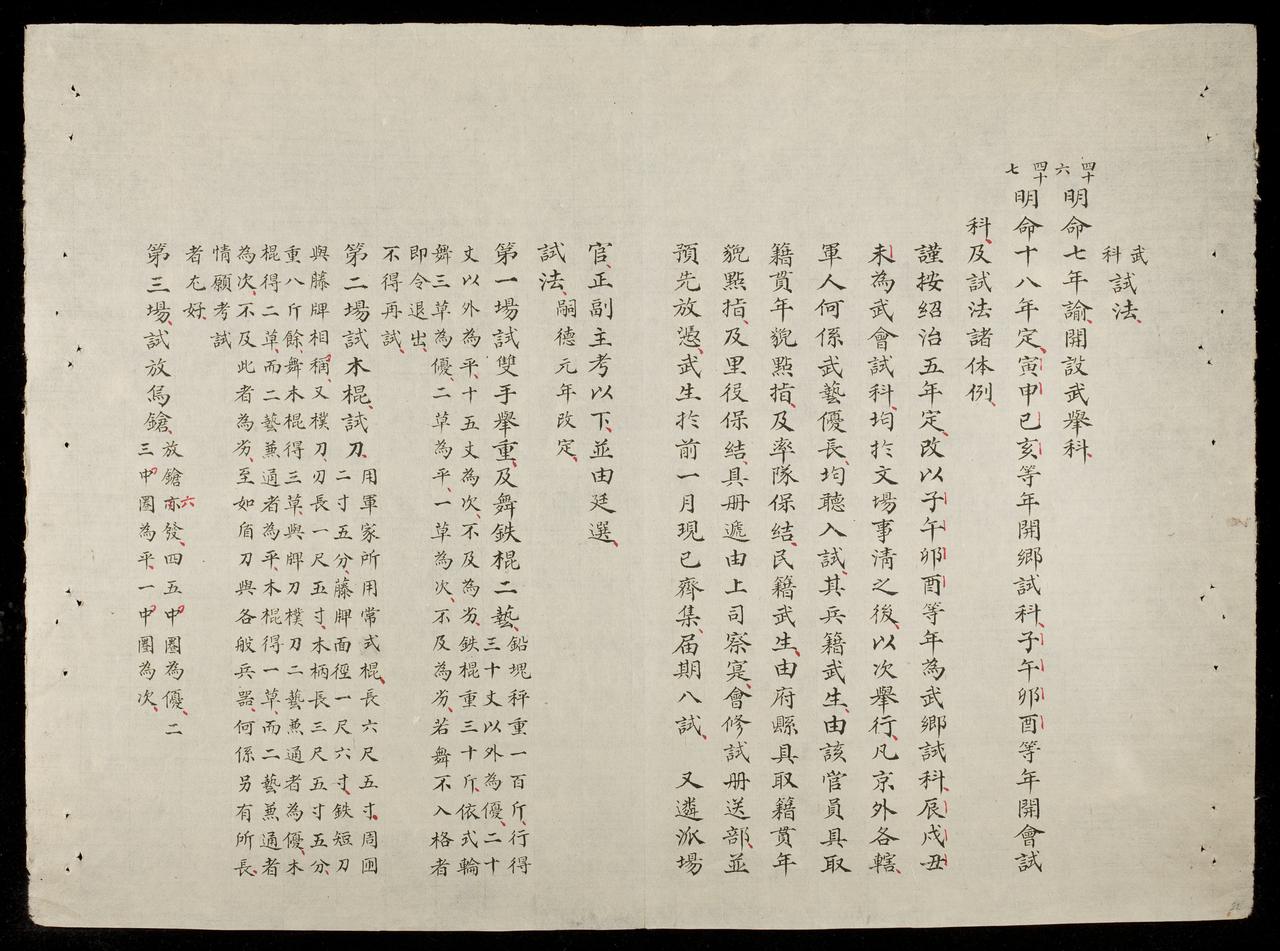 武科試法
四十六 明命七年諭開設武舉科
四十七 明命十八年定寅申巳亥等年開鄉試科子午卯酉等年開會試
科及試法諸体例
謹按紹治五年定改以子午卯酉等年為武鄉試科辰戌丑
未為武會試科均於文場事清之後以次舉行凡京外各轄
軍人何係武藝優長均聽入試其兵籍武生由該官員具取
籍貫年貌點指及率隊保結民籍武生由府縣具取籍貫年
貌點指及里役保結具册遞由上司察寔會修試册送部並
預先放憑武生於前一月現已齊集届期入試 又遴派場
官正副主考以下並由廷選
試法嗣德元年改定
第一場試雙手舉重及舞鉄棍二藝鉛塊秤重一百斤行得
三十丈以外為優二十
丈以外為平十五丈為次不及為劣鉄棍重三十斤依式輪
舞三草為優二草為平一草為次不及為劣若舞不入格者
即令退出
不得再試
第二場試木棍試刀用軍家所用常式棍長六尺五寸周囲
二寸五分藤牌面徑一尺六寸鉄短刀
與藤牌相稱又樸刀刃長一尺五寸木柄長三尺五寸五分
重八斤餘舞木棍得三草與牌刀樸刀二藝兼通者為優木
棍得二草而二藝兼通者為平木棍得一草而二藝兼通者
為次不及此者為劣至如盾刀與各般兵器何係另有所長
情願考試
者尤好
第三場試放鳥鎗放鎗六發四五中圈為優二
三中圈為平一中圈為次